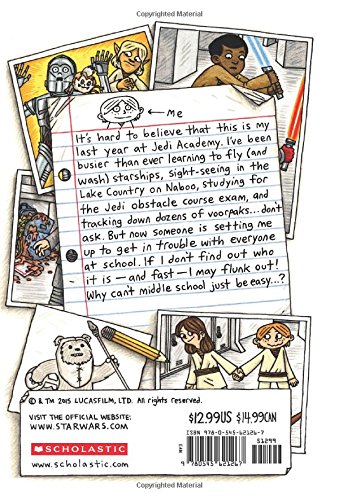 Copyrighted Material
← Me
It's hard to believe that this is my
last year at Jedi Academy. I've been
busier than ever learning to fly (and
wash) starships, sight-seeing in the
Lake Country on Naboo, studying for
the Jedi obstacle course exam, and
tracking down dozens of voorpaks...don't
ask. But now someone is setting me
up to get in trouble with everyone
at school. If I don't find out who
it is — and fast — I may flunk out!
Why can't middle school just be easy...?
© & TM 2015 LUCASFILM, LTD. All rights reserved.
VISIT THE OFFICIAL WEBSITE:
WWW.STARWARS.COM
SCHOLASTIC
www.scholastic.com
$12.99US $14.99CAN
ISBN 978-0-545-62126-7
51299
EAN
9 780545 621267
Copyrighted Material